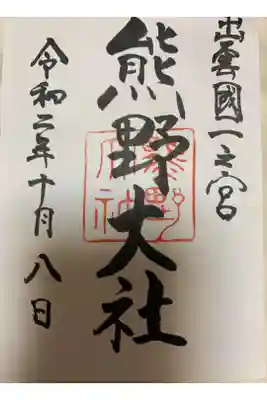 出雲國一之宮
熊野大社
令和二年十月八日
熊野大社